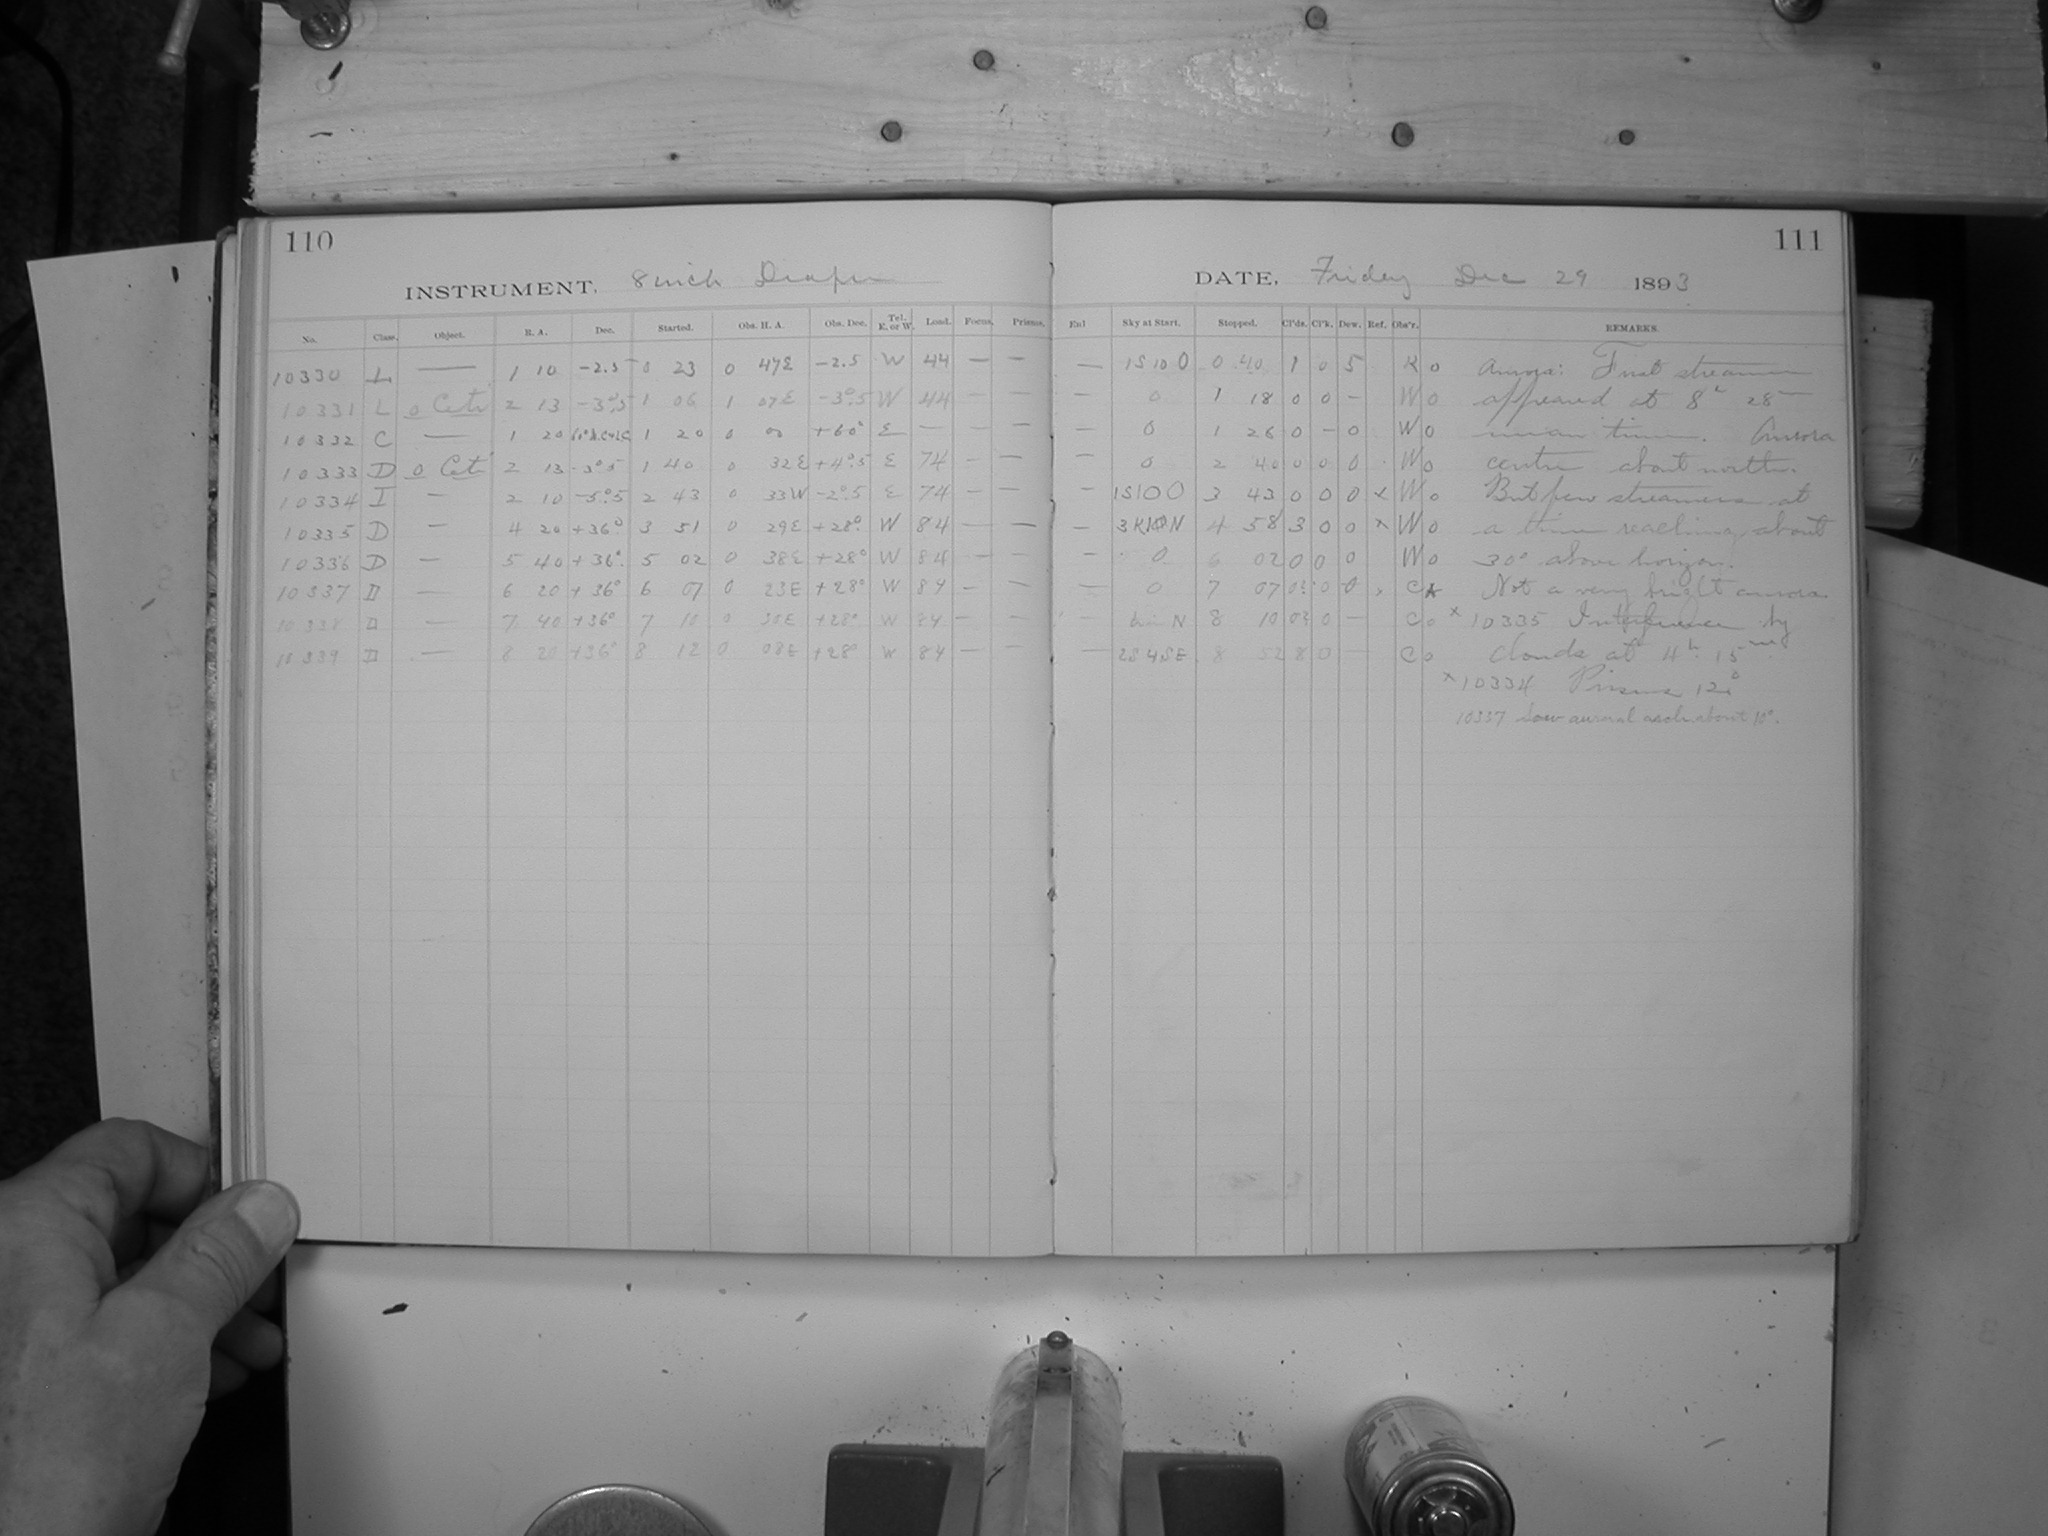 110
INSTRUMENT. 8 inch Draper
No. Class. Object. R. A. Dec. Started. Obs. H. A. Obs. Dec. Tel. E. or W. Load. Focus. Prisms.
10330 L — 1 10 -2.5 0 23 0 47E -2.5 W 44 — —
10331 L o Ceti 2 13 -3°.5 1 06 1 07E -3°.5 W 44 — —
10332 C — 1 20 1 20 0 00 +60° E — — —
10333 D o Ceti 2 13 -3°.5 1 40 0 32E +4°.5 E 74 — —
10334 I — 2 10 -5°.5 2 43 0 33W -2°.5 E 74 — —
10335 D — 4 20 +36° 3 51 0 29E +28° W 84 — —
10336 D — 5 40 +36° 5 02 0 38E +28° W 84 — —
10337 D — 6 20 +36° 6 07 0 23E +28° W 84 — —
10338 D — 7 40 +36° 7 10 0 30E +28° W 84 — —
10339 D — 8 20 +36° 8 12 0 08E +28° W 84 — —
111
DATE, Friday Dec 29 1893
Enl Sky at Start. Stopped. Cl'ds. Cl'k. Dew. Ref. Obs'r. REMARKS.
— 1S10 0 0 40 1 0 5 K o Aurora: First streamer
— 0 1 18 0 0 — W o appeared at 8h 28m
— 0 1 26 0 — 0 W o mean time. Aurora
— 0 2 40 0 0 0 W o centre about north.
— 1S10 0 3 43 0 0 0 x W o But few streamers at
— N 4 58 3 0 0 x W o a time reaching about
— 0 6 02 0 0 0 W o 30° above horizon.
— 0 7 07 0? 0 0 C Not a very bright aurora
N 8 10 0? 0 — C o x 10335 Interference by
2S4SE 8 52 8 0 — C o clouds at 4h 15m
x 10334 Prisms
10337 low auroral arch about 10°.